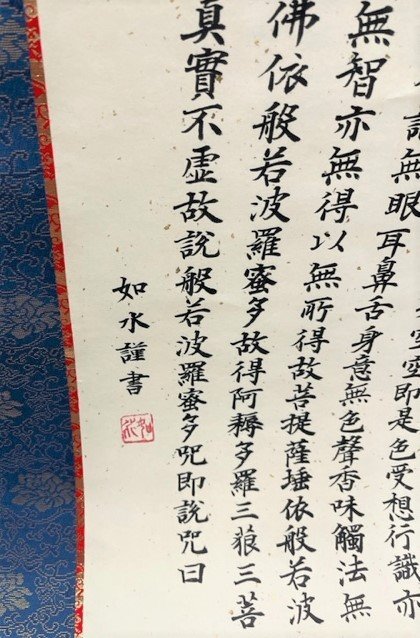 空空即是色受想行識亦
無眼耳鼻舌身意無色聲香味觸法無
無智亦無得以無所得故菩提薩埵依般若波
佛依般若波羅蜜多故得阿耨多羅三藐三菩
真實不虛故說般若波羅蜜多咒即說咒曰
如水謹書